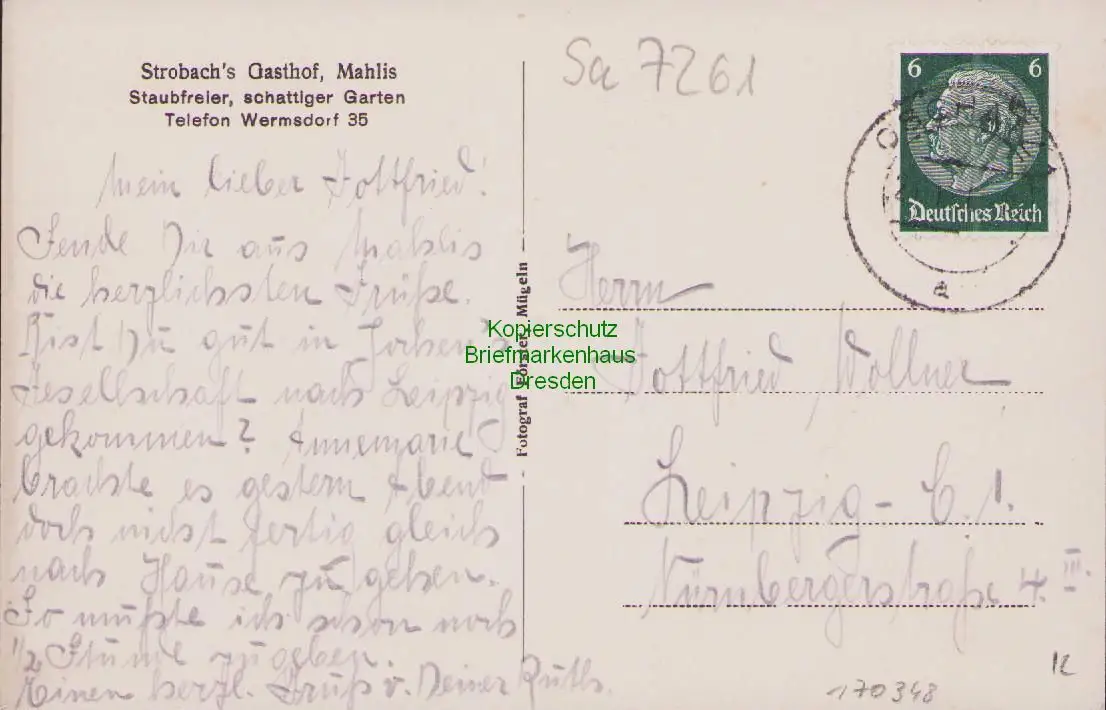 Strobach's Gasthof, Mahlis
Staubfreier, schattiger Garten
Telefon Wermsdorf 35
Mein lieber Gottfried!
Sende Dir aus Mahlis
die herzlichsten Grüße.
Bist Du gut in Jochen's
Gesellschaft nach Leipzig
gekommen? Annemarie
brachte es gestern Abend
doch nicht fertig gleich
nach Hause zu gehen.
So mußte ich schon noch
1/2 Stunde zugeben.
Einen herzl. Gruß v. Deiner Ruth.
Fotograf Förster, Mügeln
Kopierschutz
Briefmarkenhaus
Dresden
Sa 7261
6 6
Deutsches Reich
a
Herrn
Gottfried Wollner
Leipzig - C. 1.
Nürnbergerstraße 4. III.
170348